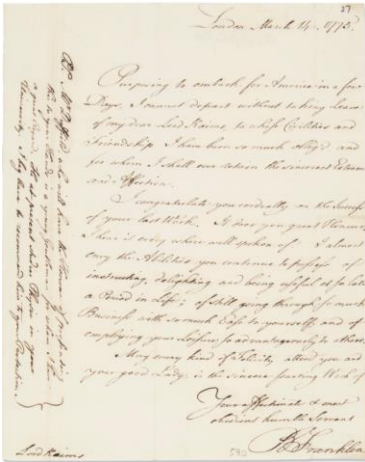 27
London March 14. 1775.
Preparing to embark for America in a few
Days, I cannot depart without taking leave
of my dear Lord Kaims, to whose Civilities and
Friendship I have been so much oblig'd and
for whom I shall ever retain the sincerest Esteem
and Affection.
I congratulate you cordially on the Success
of your last Work. It does you great Honour,
& here is every where well spoken of. I almost
envy the Abilities you continue to possess of
instructing, delighting and being useful at so late
a Period in Life; of still going through so much
Business with so much Ease to yourself, and of
employing your Leisure so advantageously to others.
May every kind of Felicity attend you and
your good Lady, is the sincere parting Wish of
Your affectionate & most
obedient humble Servant
B Franklin
Lord Kaims
PS. Mr
who will have the Honour of
this to your Hands is a young Gentleman
a good deal. He at present studies Physic in your
University. I beg leave to recommend him to your Protection.